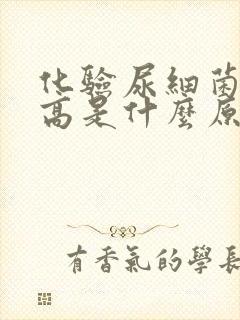 化驗尿細菌
高是什麼原
有香氣的學長